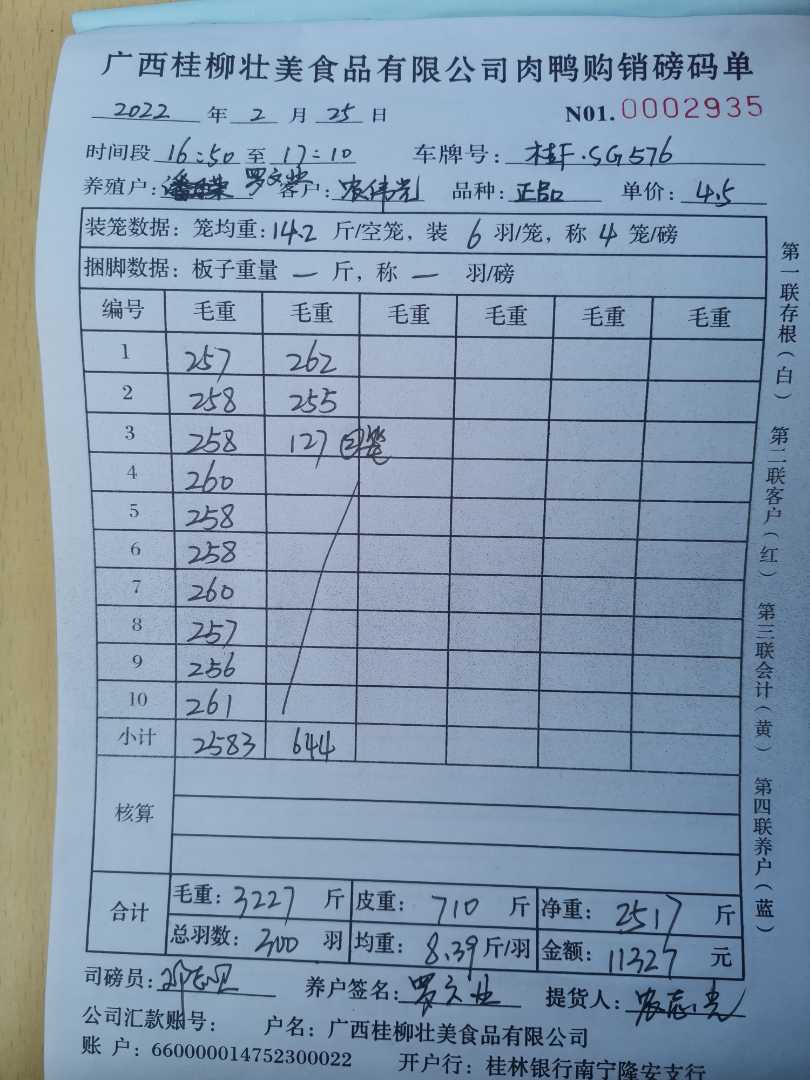 广西桂柳壮美食品有限公司肉鸭购销磅码单
2022 年 2 月 25 日 N01. 0002935
时间段 16:50 至 17:10 车牌号: 桂F·SG576
养殖户: 罗文业 客户: 农伟光 品种: 正品 单价: 4.5
装笼数据: 笼均重: 14.2 斤/空笼, 装 6 羽/笼, 称 4 笼/磅
捆脚数据: 板子重量 — 斤, 称 — 羽/磅
编号 毛重 毛重 毛重 毛重 毛重 毛重
1 257 262
2 258 255
3 258 127
4 260
5 258
6 258
7 260
8 257
9 256
10 261
小计 2583 644
核算
合计 毛重: 3227 斤 皮重: 710 斤 净重: 2517 斤
总羽数: 300 羽 均重: 8.39 斤/羽 金额: 11327 元
司磅员: 养户签名: 罗文业 提货人:
公司汇款账号: 户名: 广西桂柳壮美食品有限公司
账 户: 660000014752300022 开户行: 桂林银行南宁隆安支行
第一联存根(白) 第二联客户(红) 第三联会计(黄) 第四联养户(蓝)